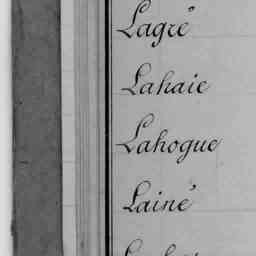 Lagré
Lahaie
Lahogue
Lainé